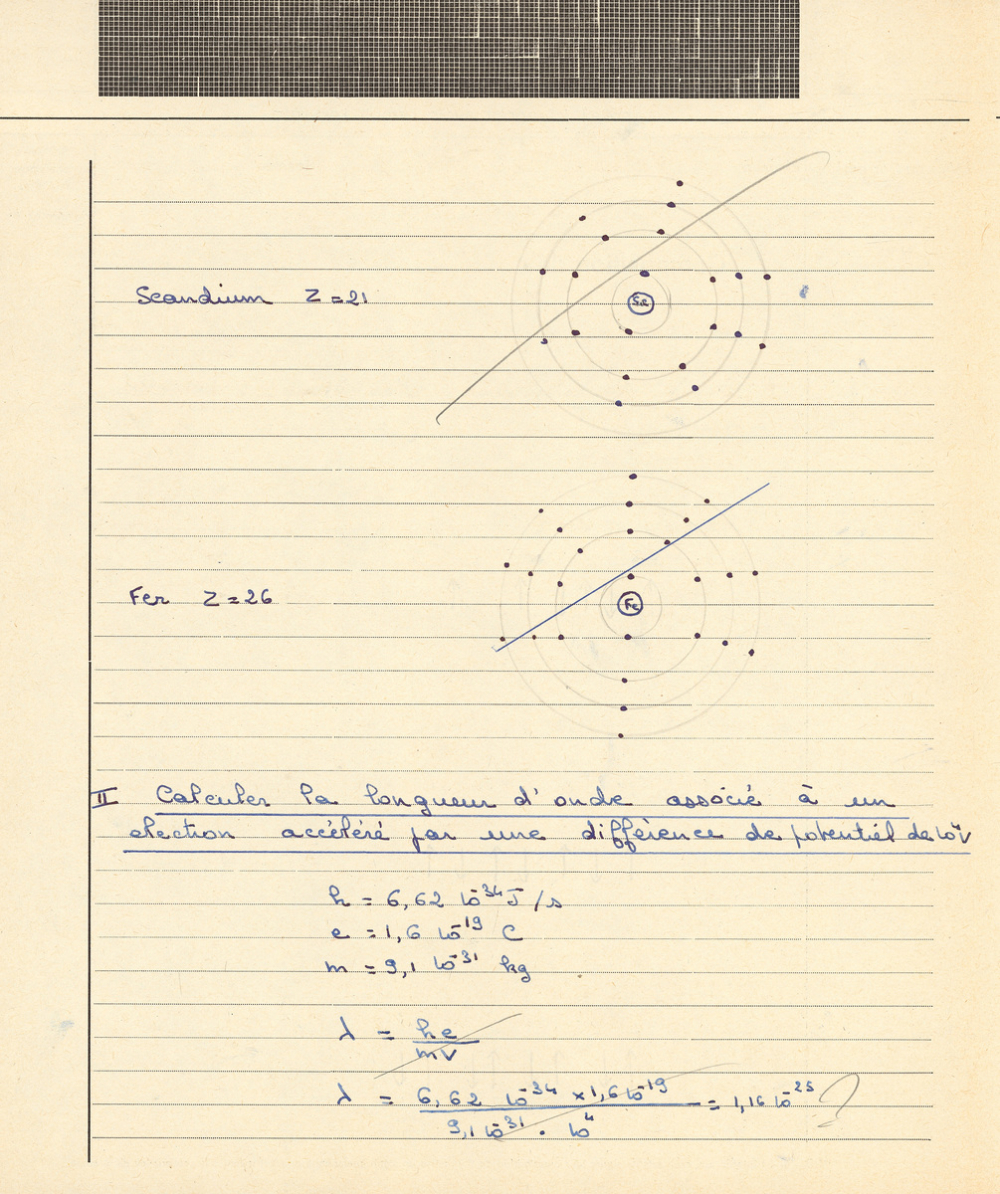 Scandium Z = 21
Sc
Fer Z = 26
Fe
II Calculer la longueur d'onde associé à un
electron accéléré par une différence de potentiel de 10⁴V
h = 6,62 10⁻³⁴ J/s
e = 1,6 10⁻¹⁹ C
m = 9,1 10⁻³¹ kg
λ = he / mv
λ = 6,62 10⁻³⁴ × 1,6 10⁻¹⁹ / 9,1 10⁻³¹ . 10⁴ = 1,16 10⁻²⁵ ?